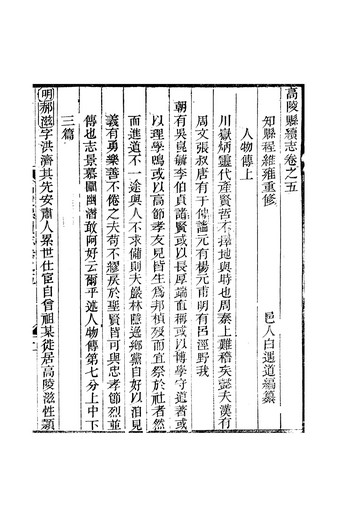 高陵縣續志卷之五
知縣程維雍重修
邑人白遇道編纂
人物傳上
川嶽炳靈代產賢哲不擇地與時也周秦上難稽矣懿夫漢有
周文張叔唐有于傳譜元有楊元甫明有呂涇野我
朝有吳昆毓李伯貞諸賢或以長厚端直稱或以博學守道著或
以理學鳴或以高節孝友見皆生爲邦楨歿而宜祭於社者然
而進道不一途與人不求備則夫巖林隱逸鄉黨自好以洎見
義有勇樂善不倦之夫苟不繆戾於聖賢皆可與忠孝節烈並
傳也志景慕闡幽潛敢阿好云爾乎述人物傳第七分上中下
三篇
明郝滋字洪濟其先安肅人累世仕宦自曾祖某徙居高陵滋性穎